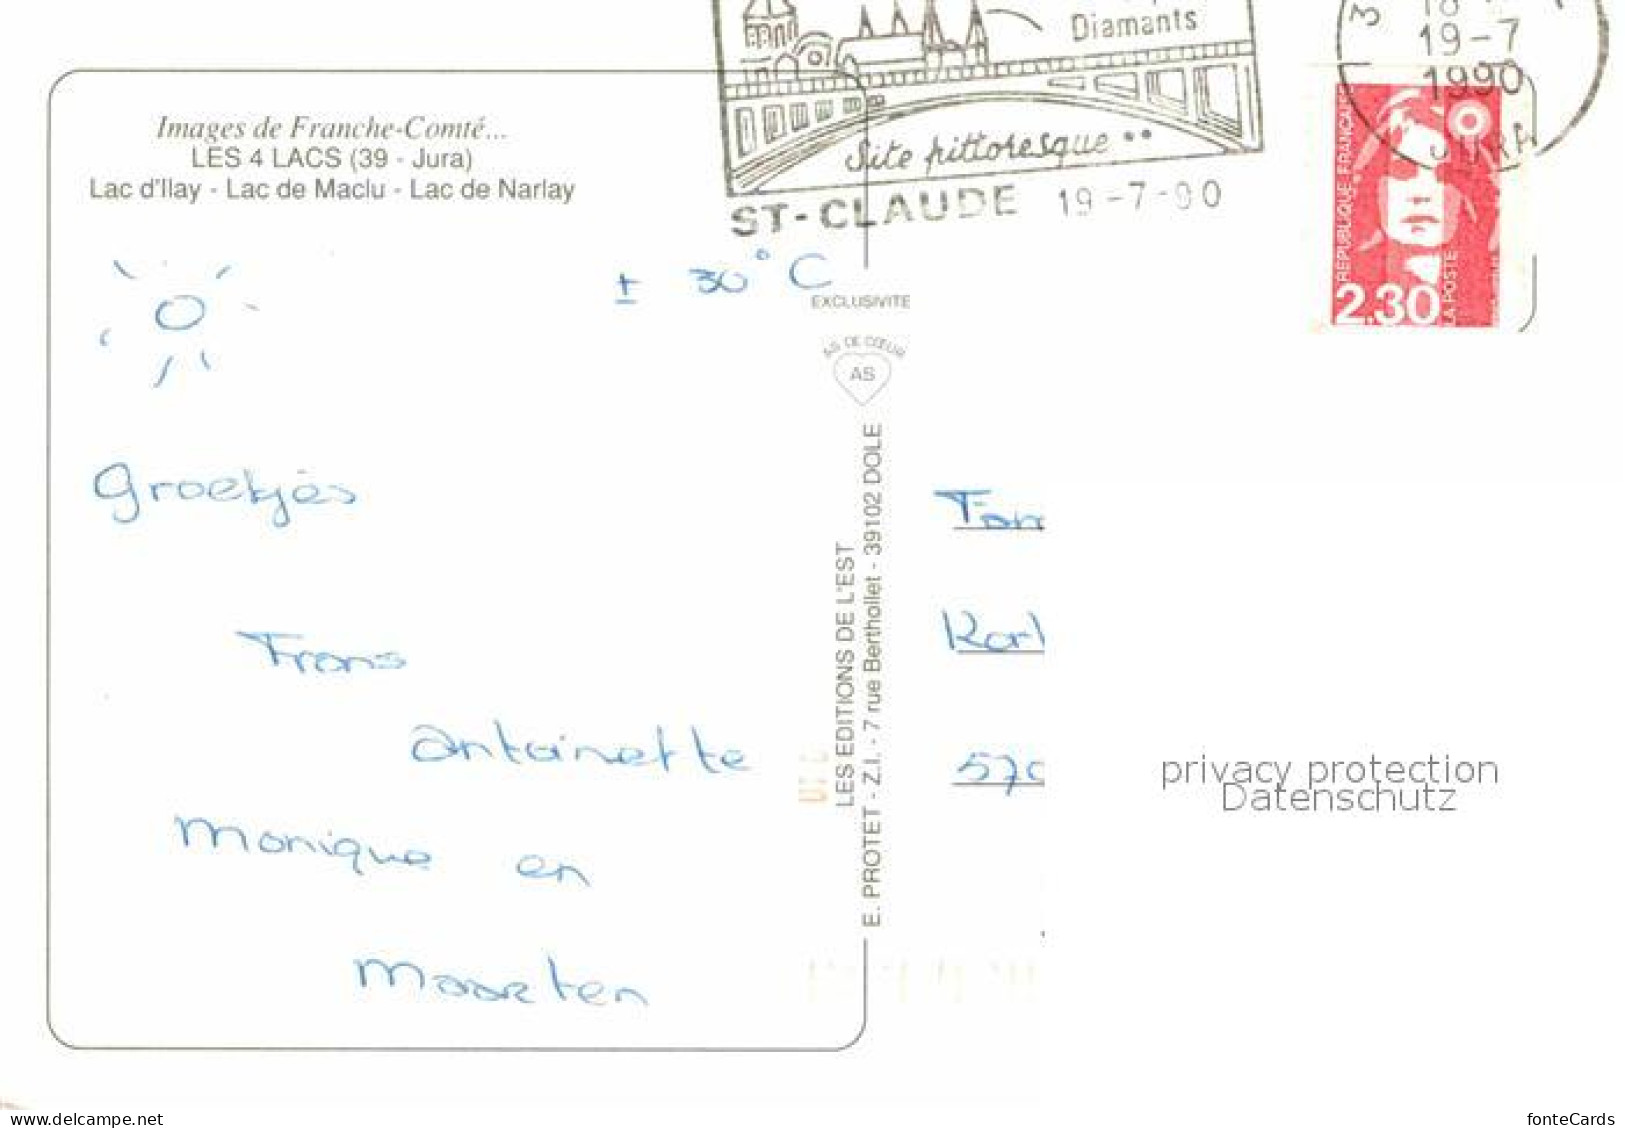 Diamants
Site pittoresque **
ST-CLAUDE 19-7-90
19-7
1990
JURA
Images de Franche-Comté...
LES 4 LACS (39 - Jura)
Lac d'Ilay - Lac de Maclu - Lac de Narlay
REPUBLIQUE FRANÇAISE
LA POSTE
2,30
± 30°C
EXCLUSIVITE
AS DE CŒUR
AS
Groetjes
Frans
Antoinette
Monique en
Maarten
LES EDITIONS DE L'EST
E. PROTET - Z.I. - 7 rue Berthollet - 39102 DOLE
Fam
570
privacy protection
Datenschutz
www.delcampe.net
fonteCards